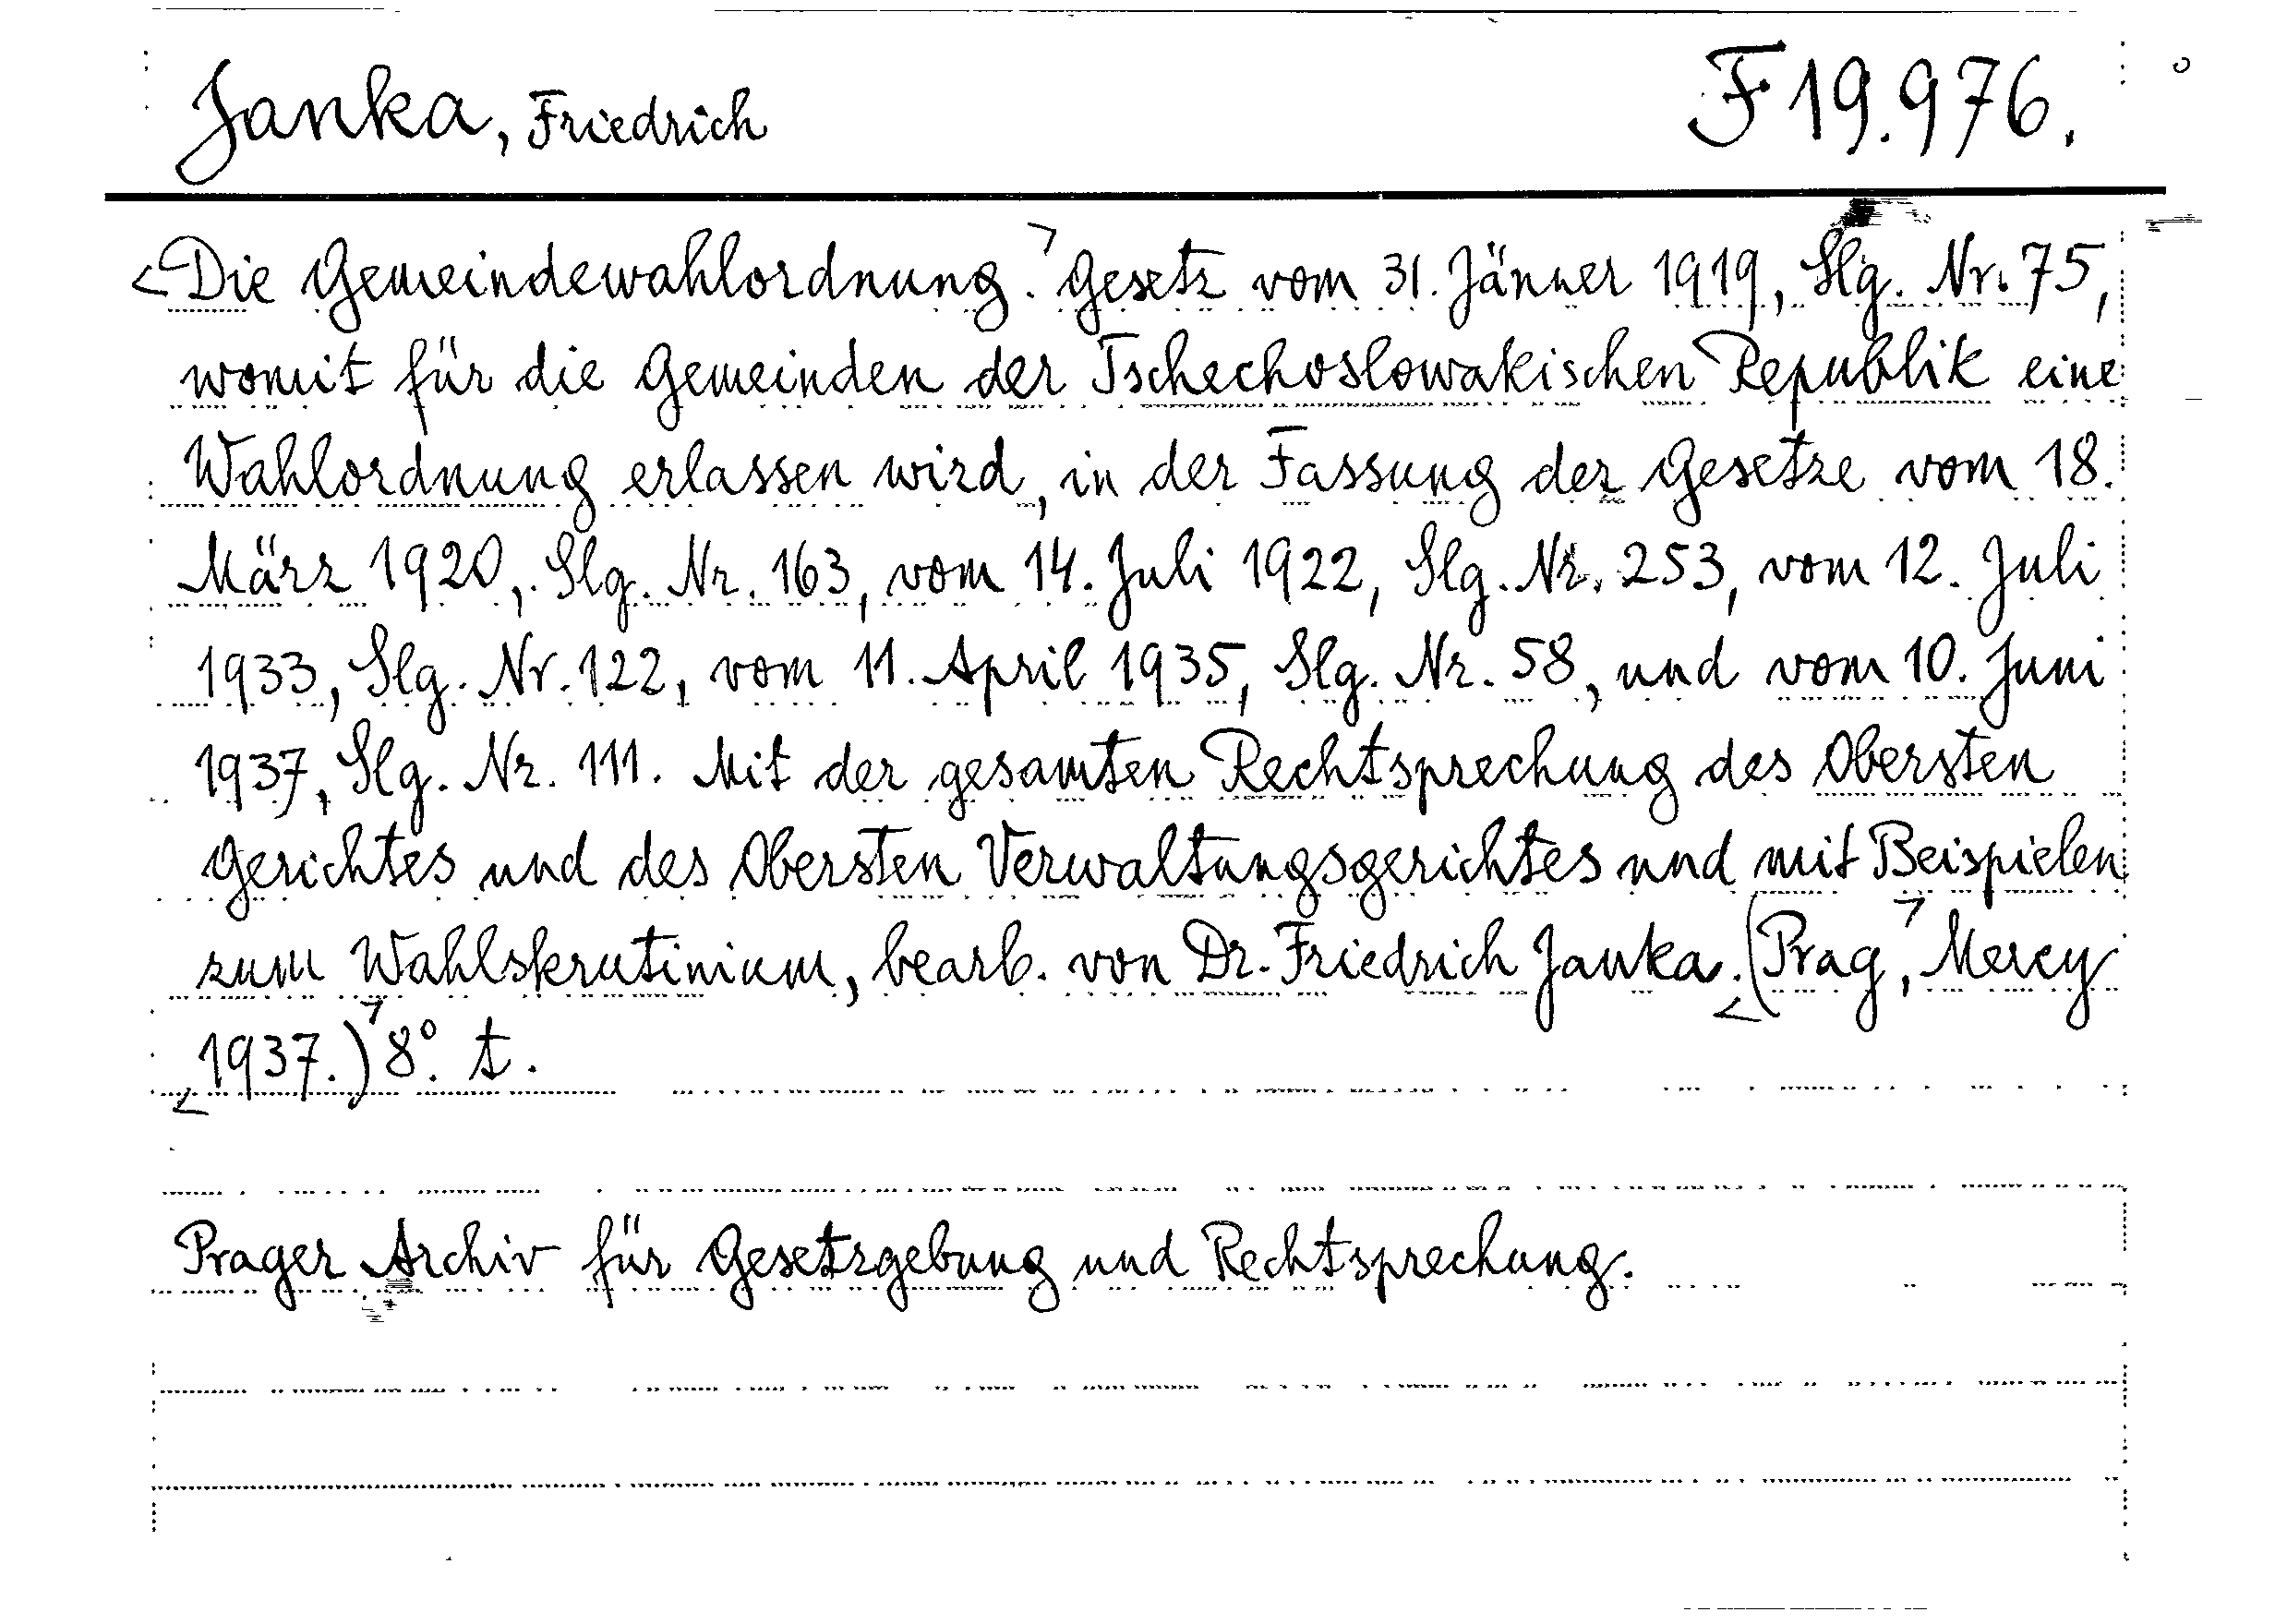 Janka, Friedrich F 19.976.
<Die Gemeindewahlordnung.> Gesetz vom 31. Jänner 1919, Slg. Nr. 75,
womit für die Gemeinden der Tschechoslowakischen Republik eine
Wahlordnung erlassen wird, in der Fassung der Gesetze vom 18.
März 1920, Slg. Nr. 163, vom 14. Juli 1922, Slg. Nr. 253, vom 12. Juli
1933, Slg. Nr. 122, vom 11. April 1935, Slg. Nr. 58, und vom 10. Juni
1937, Slg. Nr. 111. Mit der gesamten Rechtsprechung des Obersten
Gerichtes und des Obersten Verwaltungsgerichtes und mit Beispielen
zum Wahlskrutinium, bearb. von Dr. Friedrich Janka. <(Prag>, Mercy
<1937.)> 8°. t.
Prager Archiv für Gesetzgebung und Rechtsprechung.